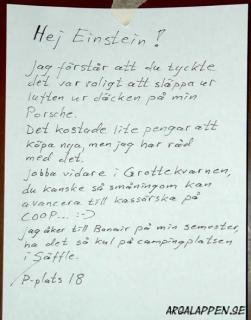 Hej Einstein!
Jag förstår att du tyckte
det var roligt att släppa ur
luften ur däcken på min
Porsche.
Det kostade lite pengar att
köpa nya, men jag har råd
med det.
Jobba vidare i Grottekvarnen,
du kanske så småningom kan
avancera till kassörska på
COOP... :-)
Jag åker till Bonair på min semester,
ha det så kul på campingplatsen
i Säffle.
/P-plats 18
ARGALAPPEN.SE